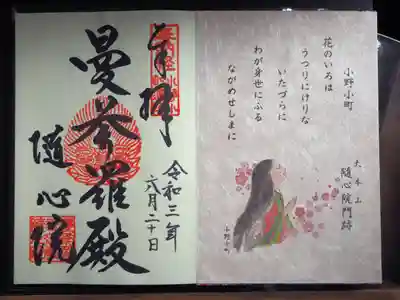 小野小町
花のいろは
うつりにけりな
いたづらに
わが身世にふる
ながめせしまに
大本山
隨心院門跡
小野小町
奉拝
令和三年
六月二十日
曼荼羅殿
隨心院